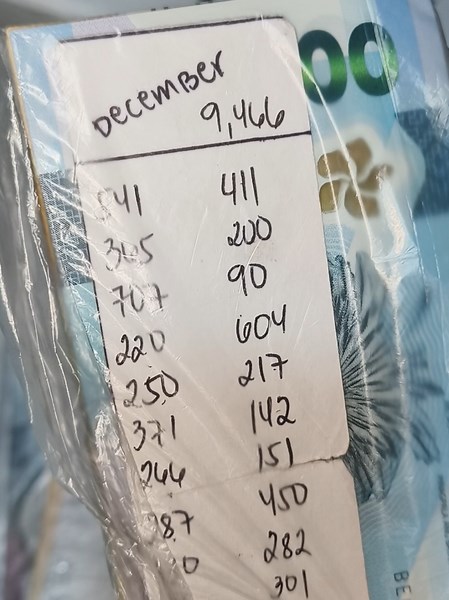 00
December
9,466
541 411
200
707 90
220 604
250 217
371 142
266 151
87 450
0 282
301
BE